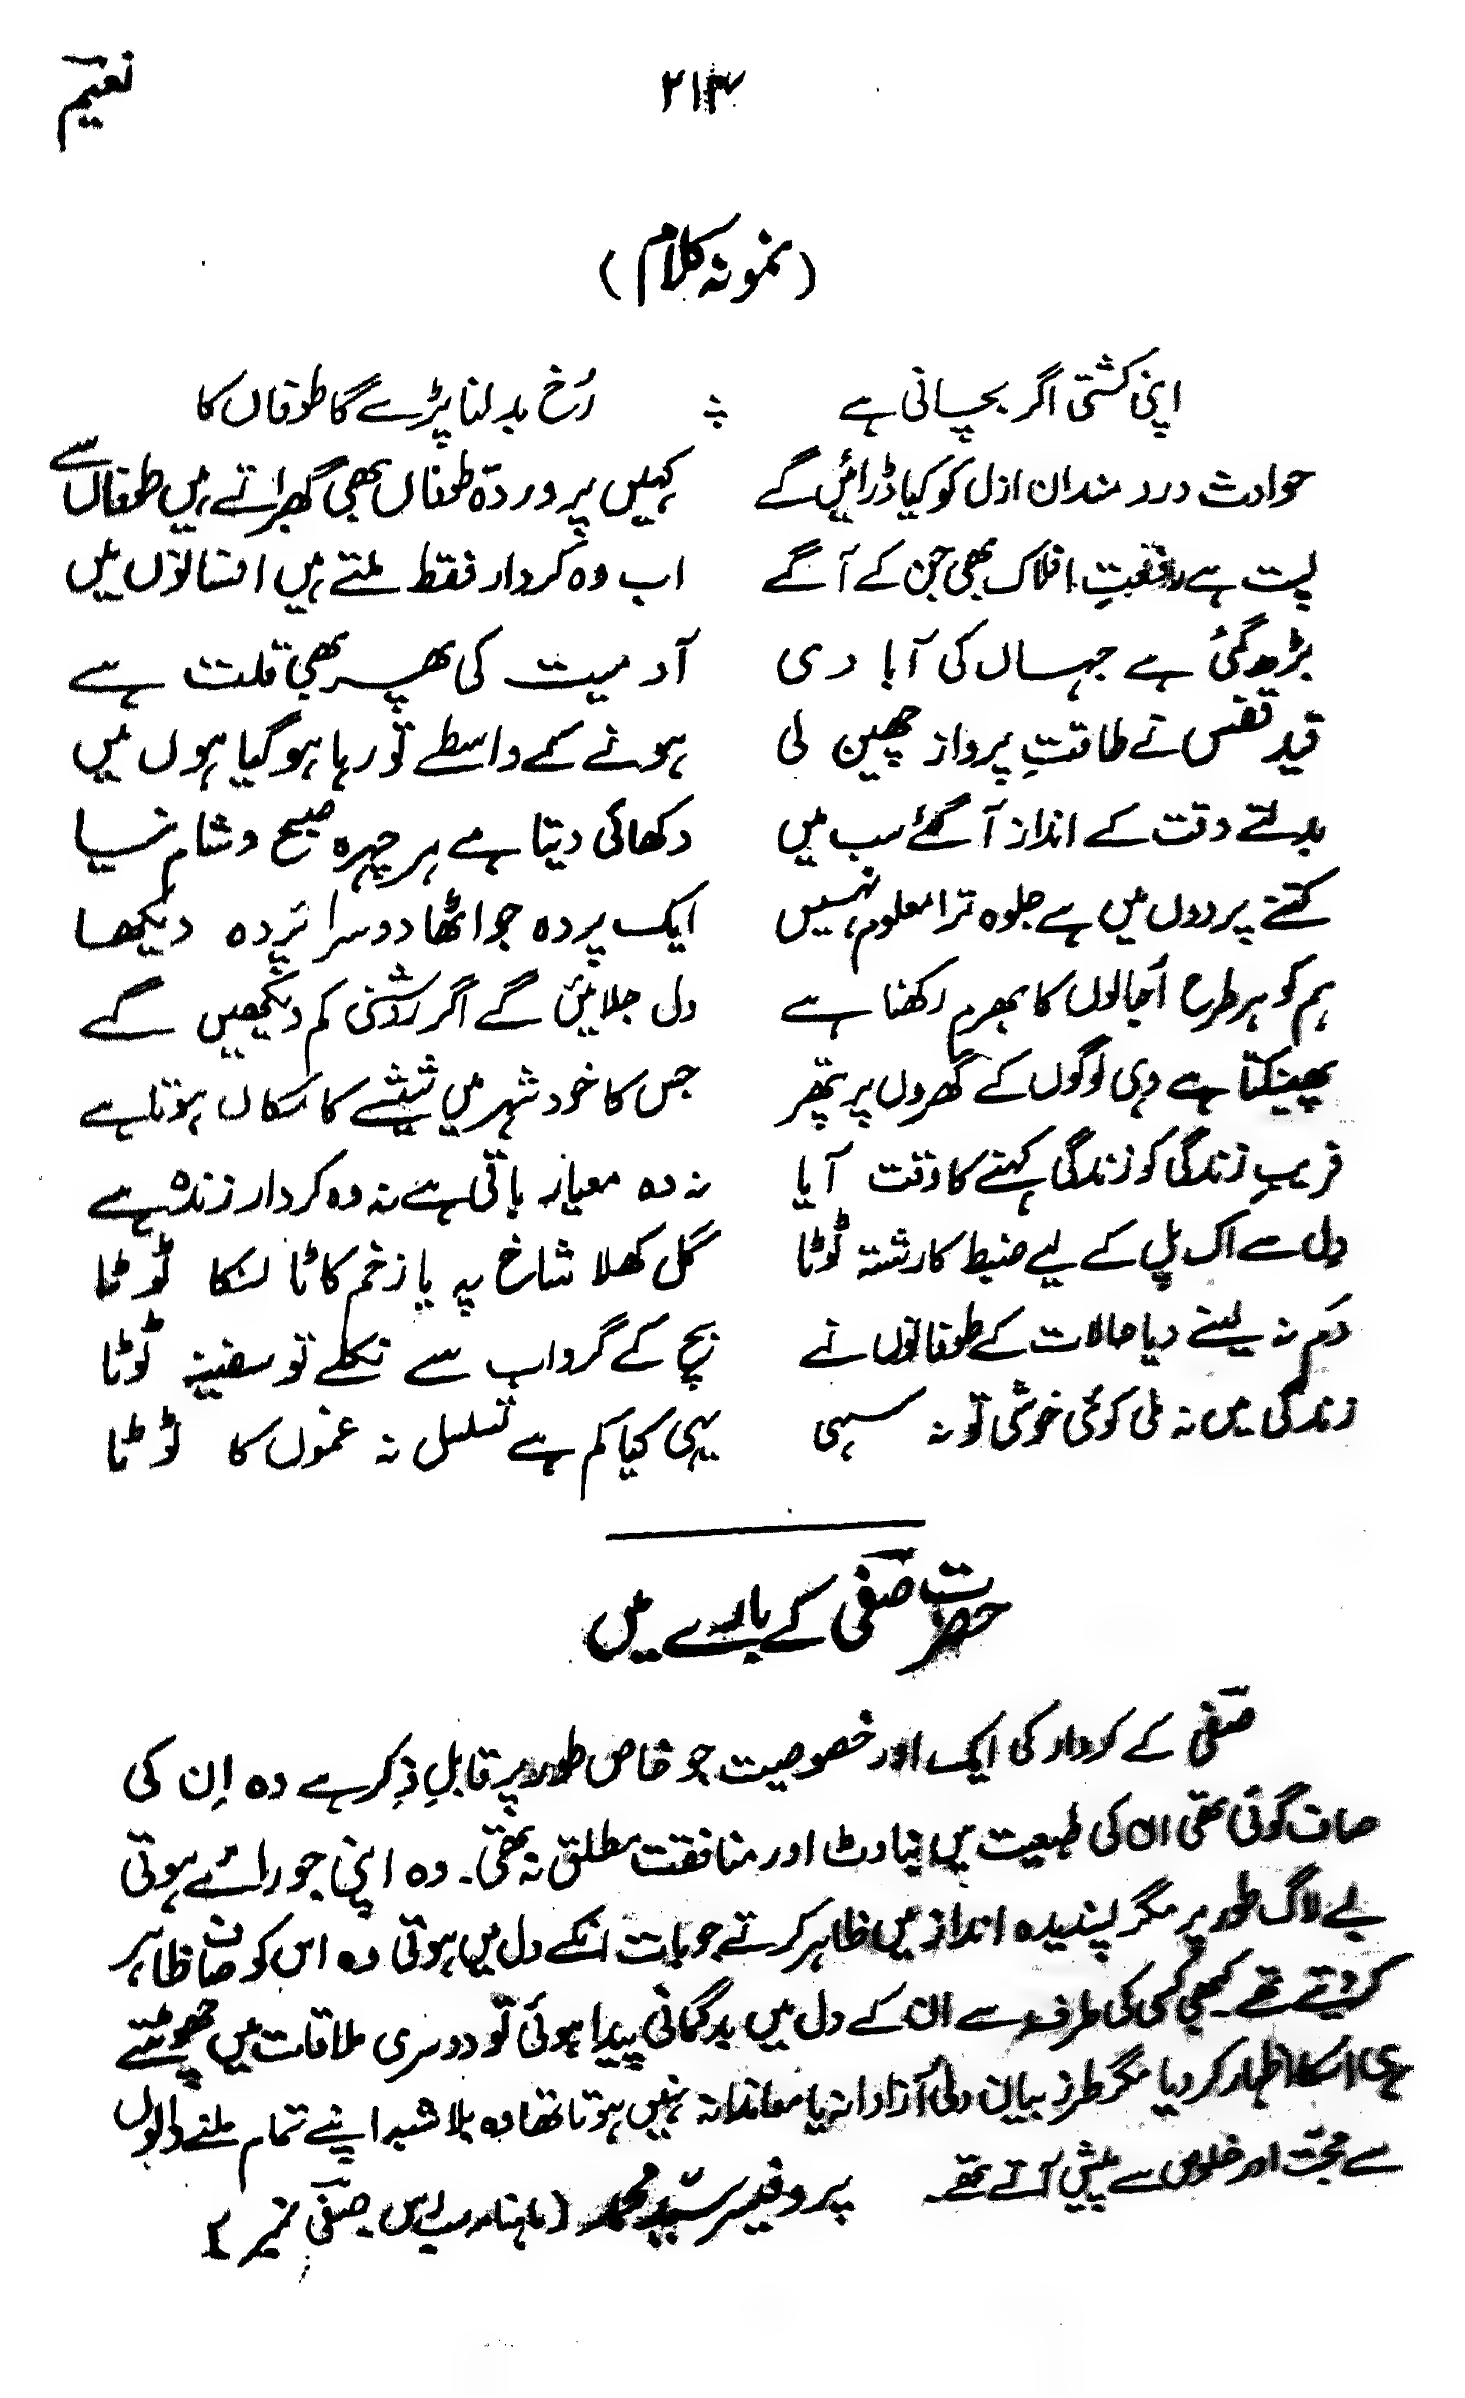 نعیم
۲۱۳
(نمونہ کلام)
اپنی کشتی اگر بچانی ہے ؞ رُخ بدلنا پڑے گا طوفاں کا
حوادث درد مندان ازل کو کیا ڈرائیں گے کہیں پروردۂ طوفاں بھی گھبراتے ہیں طوفاں سے
پست ہے رفعتِ افلاک بھی جن کے آگے اب وہ کردار فقط ملتے ہیں افسانوں میں
بڑھ گئی ہے جہاں کی آبادی آدمیت کی پھر بھی قلت ہے
قید قفس نے طاقتِ پرواز چھین لی ہونے کے واسطے تو رہا ہو گیا ہوں میں
بدلتے وقت کے انداز آ گئے سب میں دکھائی دیتا ہے ہر چہرہ صبح و شام نیا
کتنے پردوں میں ہے جلوہ ترا معلوم نہیں ایک پردہ جو اٹھا دوسرا پردہ دیکھا
ہم کو ہر طرح اُجالوں کا بھرم رکھنا ہے دل جلائیں گے اگر روشنی کم دیکھیں گے
پھینکتا ہے وہی لوگوں کے گھروں پر پتھر جس کا خود شہر میں شیشے کا مکاں ہوتا ہے
فریبِ زندگی کو زندگی کہنے کا وقت آیا نہ وہ معیار باقی ہے نہ وہ کردار زندہ ہے
دِل سے اک پل کے لیے ضبط کا رشتہ ٹوٹا گل کھلا شاخ پہ یا زخم کا ٹانکا ٹوٹا
دَم نہ لینے دیا حالات کے طوفانوں نے بچ کے گرداب سے نکلے تو سفینہ ٹوٹا
زندگی میں نہ ملی کوئی خوشی تو نہ سہی یہی کیا کم ہے تسلسل نہ غموں کا ٹوٹا
حضرت صفی کے بارے میں
صفی کے کردار کی ایک اور خصوصیت جو خاص طور پر قابلِ ذکر ہے وہ اِن کی
صاف گوئی تھی ان کی طبیعت میں بناوٹ اور منافقت مطلق نہ تھی۔ وہ اپنی جو رائے ہوتی
بے لاگ طور پر مگر پسندیدہ انداز میں ظاہر کرتے جو بات انکے دل میں ہوتی وہ اس کو صاف ظاہر
کر دیتے تھے۔ کبھی کسی کی طرف سے ان کے دل میں بدگمانی پیدا ہوئی تو دوسری ملاقات میں چھوٹتے
ہی اسکا اظہار کر دیا مگر طرز بیان دل آزارانہ یا معاندانہ نہیں ہوتا تھا وہ بلا شبہ اپنے تمام ملنے والوں
سے محبت اور خلوص سے پیش آتے تھے۔ پروفیسر سید محمد (ماہنامہ سب رس صفی نمبر)